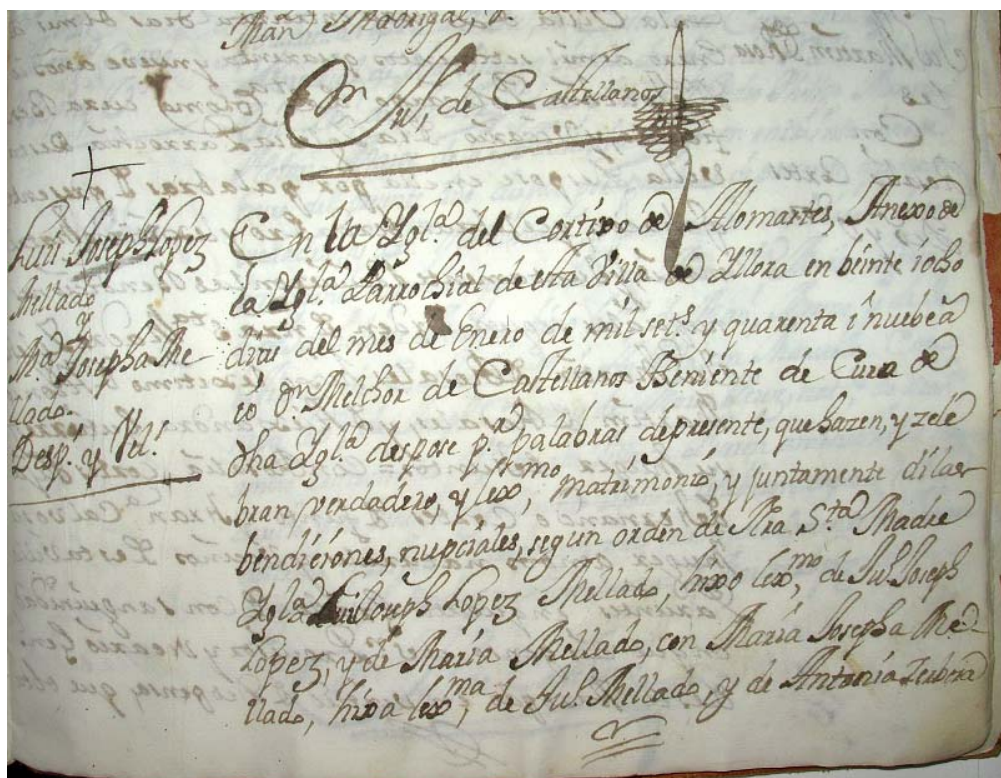 Man Madrigal, 
Dn Ju, de Castellanos
Luis Joseph Lopez
Mellado
y
Ma. Josepha Me-
llado.
Desp. y Vel.
En la Ygla. del Cortixo de Alomartes, Anexo de
la Ygla. Parrochial de esta Villa de Yllora en beinte iocho
dias del mes de Enero de mil sets. y quarenta i nuebe a
io Dn. Melchor de Castellanos Beniente de Cura de
dha Ygla. despose pr. palabras depresente, que hazen, y zele
bran verdadero, y lexmo, matrimonio, y juntamente di las
bendiciones, nupciales, segun orden de Nra Sta. Madre
Ygla. Luis Joseph Lopez Mellado, hixo lexmo, de Ju. Joseph
Lopez, y de Maria Mellado, con Maria Josepha Me
llado, hixa lexma, de Ju. Mellado, y de Antonia